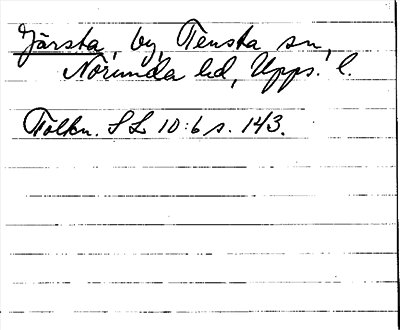 Järsta, by, Tensta sn,
Norunda hd, Upps. l.
Tolkn. SL 10:6 s. 143.